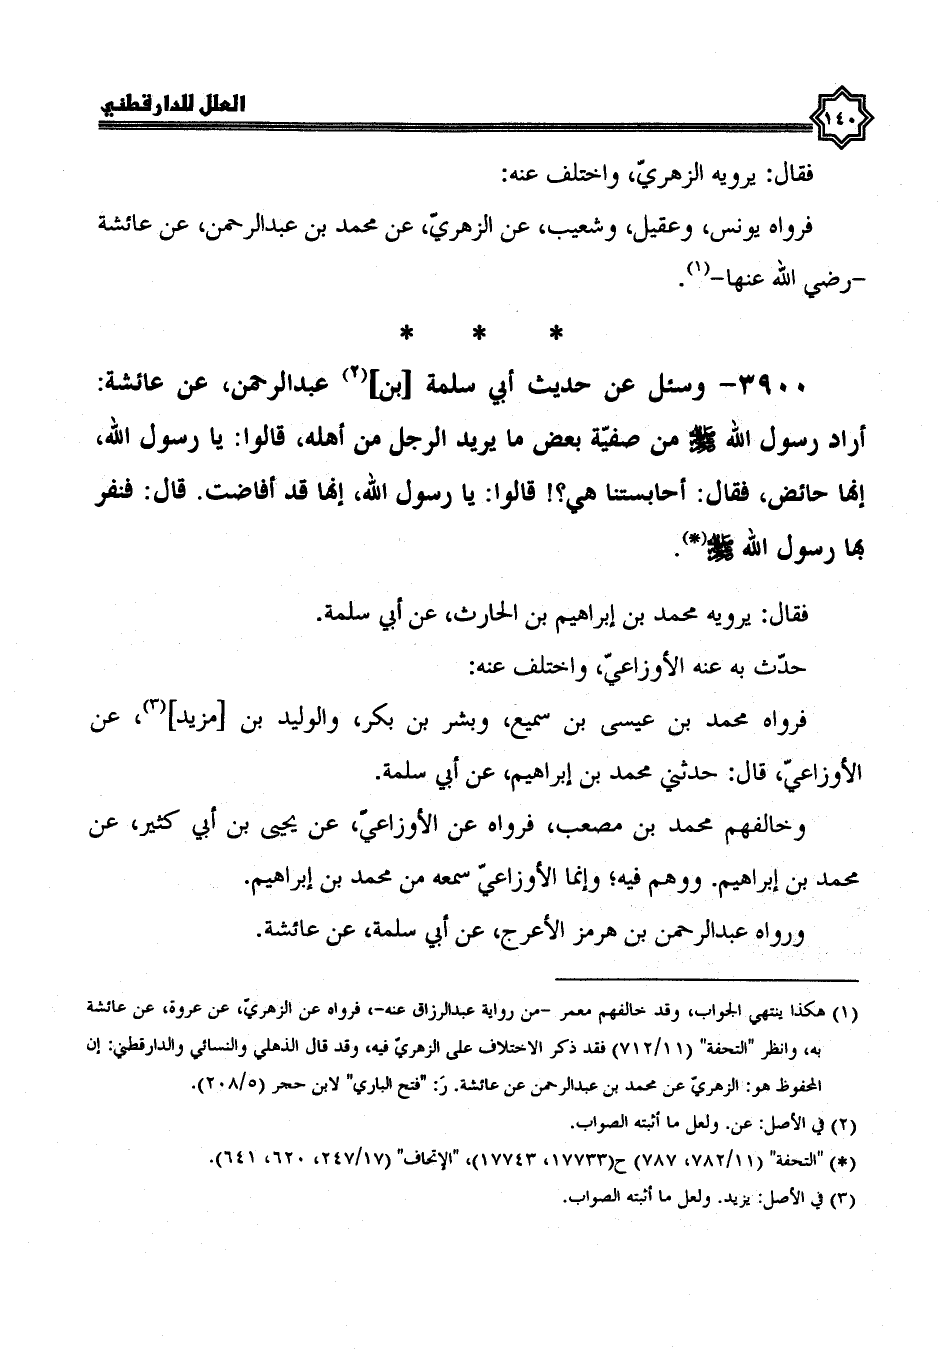 العلل للدارقطني
١٤٠
فقال: يرويه الزهريّ، واختلف عنه:
فرواه يونس، وعقيل، وشعيب، عن الزهريّ، عن محمد بن عبدالرحمن، عن عائشة
-رضي الله عنها-(١).
* * *
٣٩٠٠- وسئل عن حديث أبي سلمة [بن](٢) عبدالرحمن، عن عائشة:
أراد رسول الله ﷺ من صفيّة بعض ما يريد الرجل من أهله، قالوا: يا رسول الله،
إنها حائض، فقال: أحابستنا هي؟! قالوا: يا رسول الله، إنها قد أفاضت. قال: فنفر
بها رسول الله ﷺ(*).
فقال: يرويه محمد بن إبراهيم بن الحارث، عن أبي سلمة.
حدّث به عنه الأوزاعيّ، واختلف عنه:
فرواه محمد بن عيسى بن سميع، وبشر بن بكر، والوليد بن [مزيد](٣)، عن
الأوزاعيّ، قال: حدثني محمد بن إبراهيم، عن أبي سلمة.
وخالفهم محمد بن مصعب، فرواه عن الأوزاعيّ، عن يحيى بن أبي كثير، عن
محمد بن إبراهيم. ووهم فيه؛ وإنما الأوزاعيّ سمعه من محمد بن إبراهيم.
ورواه عبدالرحمن بن هرمز الأعرج، عن أبي سلمة، عن عائشة.
(١) هكذا ينتهي الجواب، وقد خالفهم معمر -من رواية عبدالرزاق عنه-، فرواه عن الزهريّ، عن عروة، عن عائشة
به، وانظر "التحفة" (٧١٢/١١) فقد ذكر الاختلاف على الزهريّ فيه، وقد قال الذهلي والنسائي والدارقطني: إن
المحفوظ هو: الزهريّ عن محمد بن عبدالرحمن عن عائشة. رَ: "فتح الباري" لابن حجر (٢٠٨/٥).
(٢) في الأصل: عن. ولعل ما أثبته الصواب.
(*) "التحفة" (٧٨٢/١١، ٧٨٧) ح(١٧٧٣٣، ١٧٧٤٣)، "الإتحاف" (٢٤٧/١٧، ٦٢٠، ٦٤١).
(٣) في الأصل: يزيد. ولعل ما أثبته الصواب.